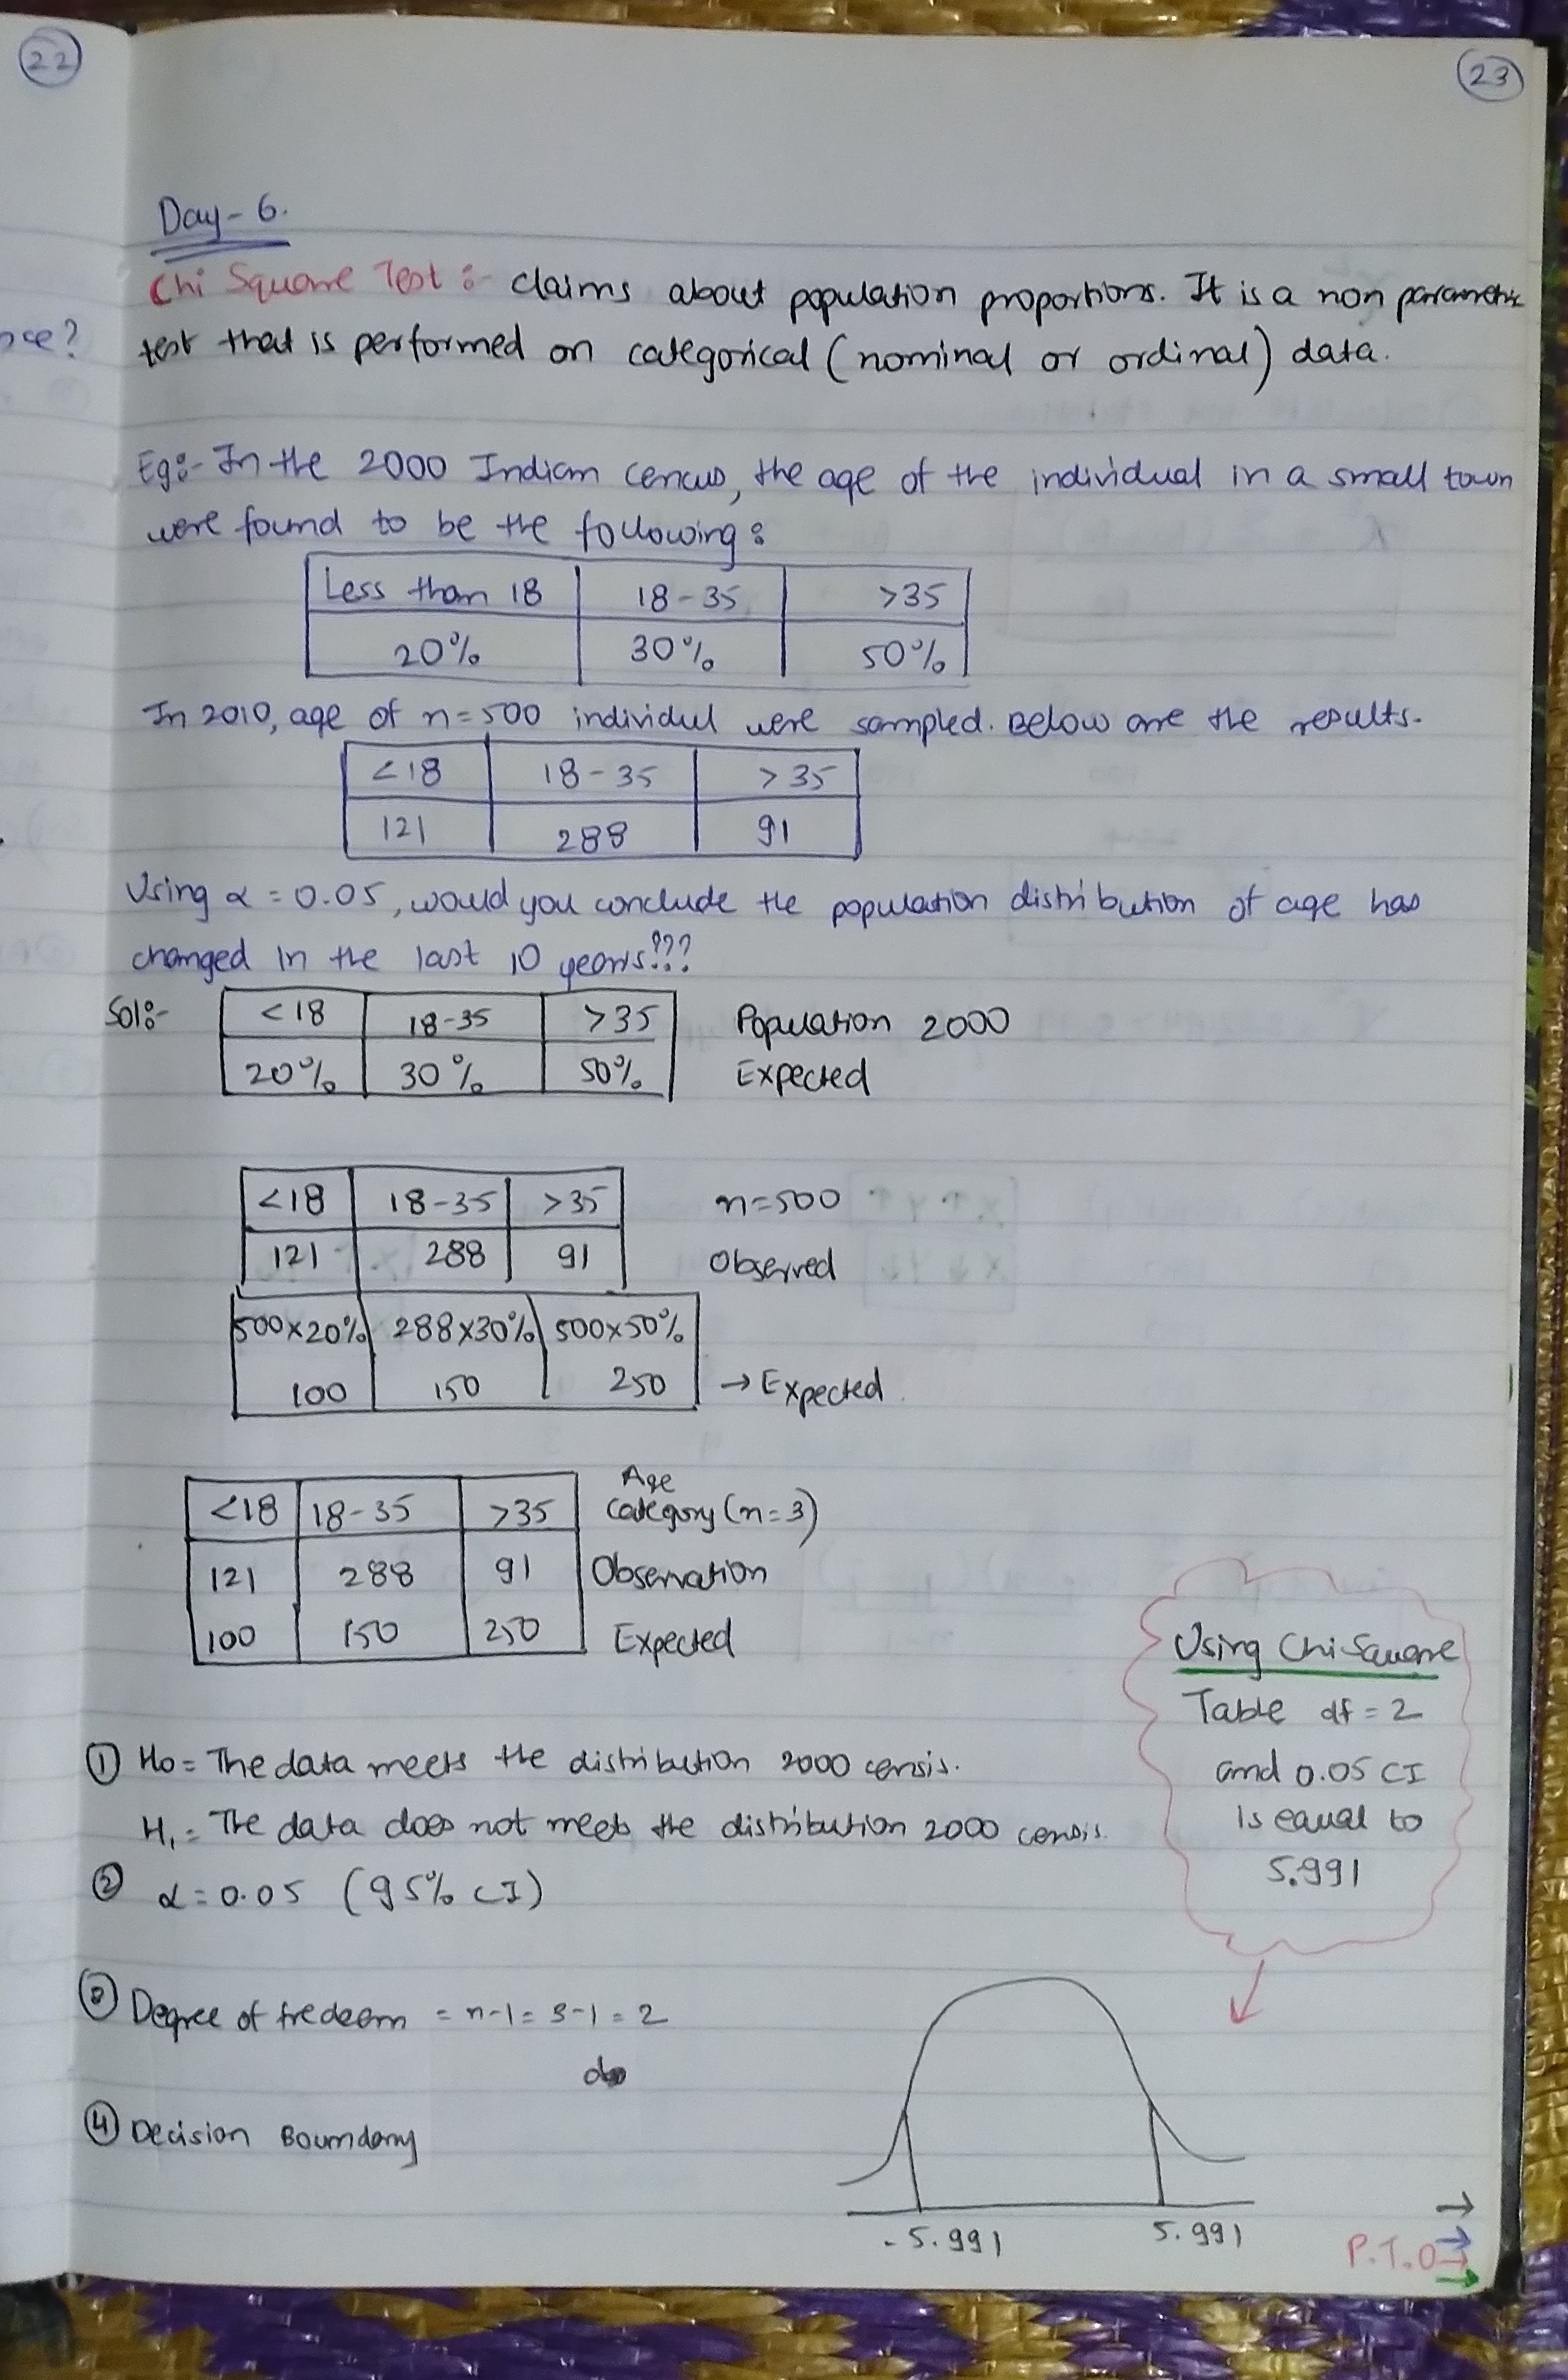 22
23
Day-6.
Chi Square Test :- claims about population proportions. It is a non parametric
nce?
test that is performed on categorical (nominal or ordinal) data.
Eg:- In the 2000 Indian cencus, the age of the individual in a small town
were found to be the following:
Less than 18 18-35 >35
20% 30% 50%
In 2010, age of n=500 individul were sampled. Below are the results.
<18 18-35 >35
121 288 91
Using α = 0.05, would you conclude the population distribution of age has
changed in the last 10 years???
Sol:- <18 18-35 >35 Population 2000
20% 30% 50% Expected
<18 18-35 >35 n=500
121 288 91 Observed
500x20% 288x30% 500x50%
100 150 250 → Expected
Age
<18 18-35 >35 Category (n=3)
121 288 91 Observation
100 150 250 Expected
Using Chi Square
Table df = 2
and 0.05 CI
is equal to
5.991
① H0 = The data meets the distribution 2000 censis.
H1 = The data does not meets the distribution 2000 censis.
② α = 0.05 (95% CI)
③ Degree of fredeom = n-1 = 3-1 = 2
④ Decision Boundary
-5.991 5.991
P.T.O